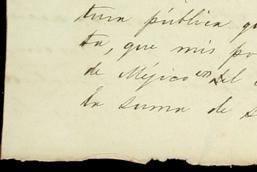 tura pública qu
ta, que mis po
de Méjico en del
la suma de s